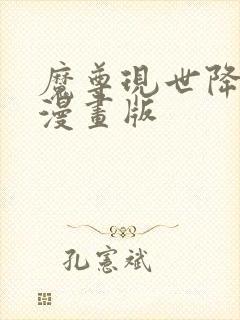 魔尊現世降
漫畫版
孔憲斌